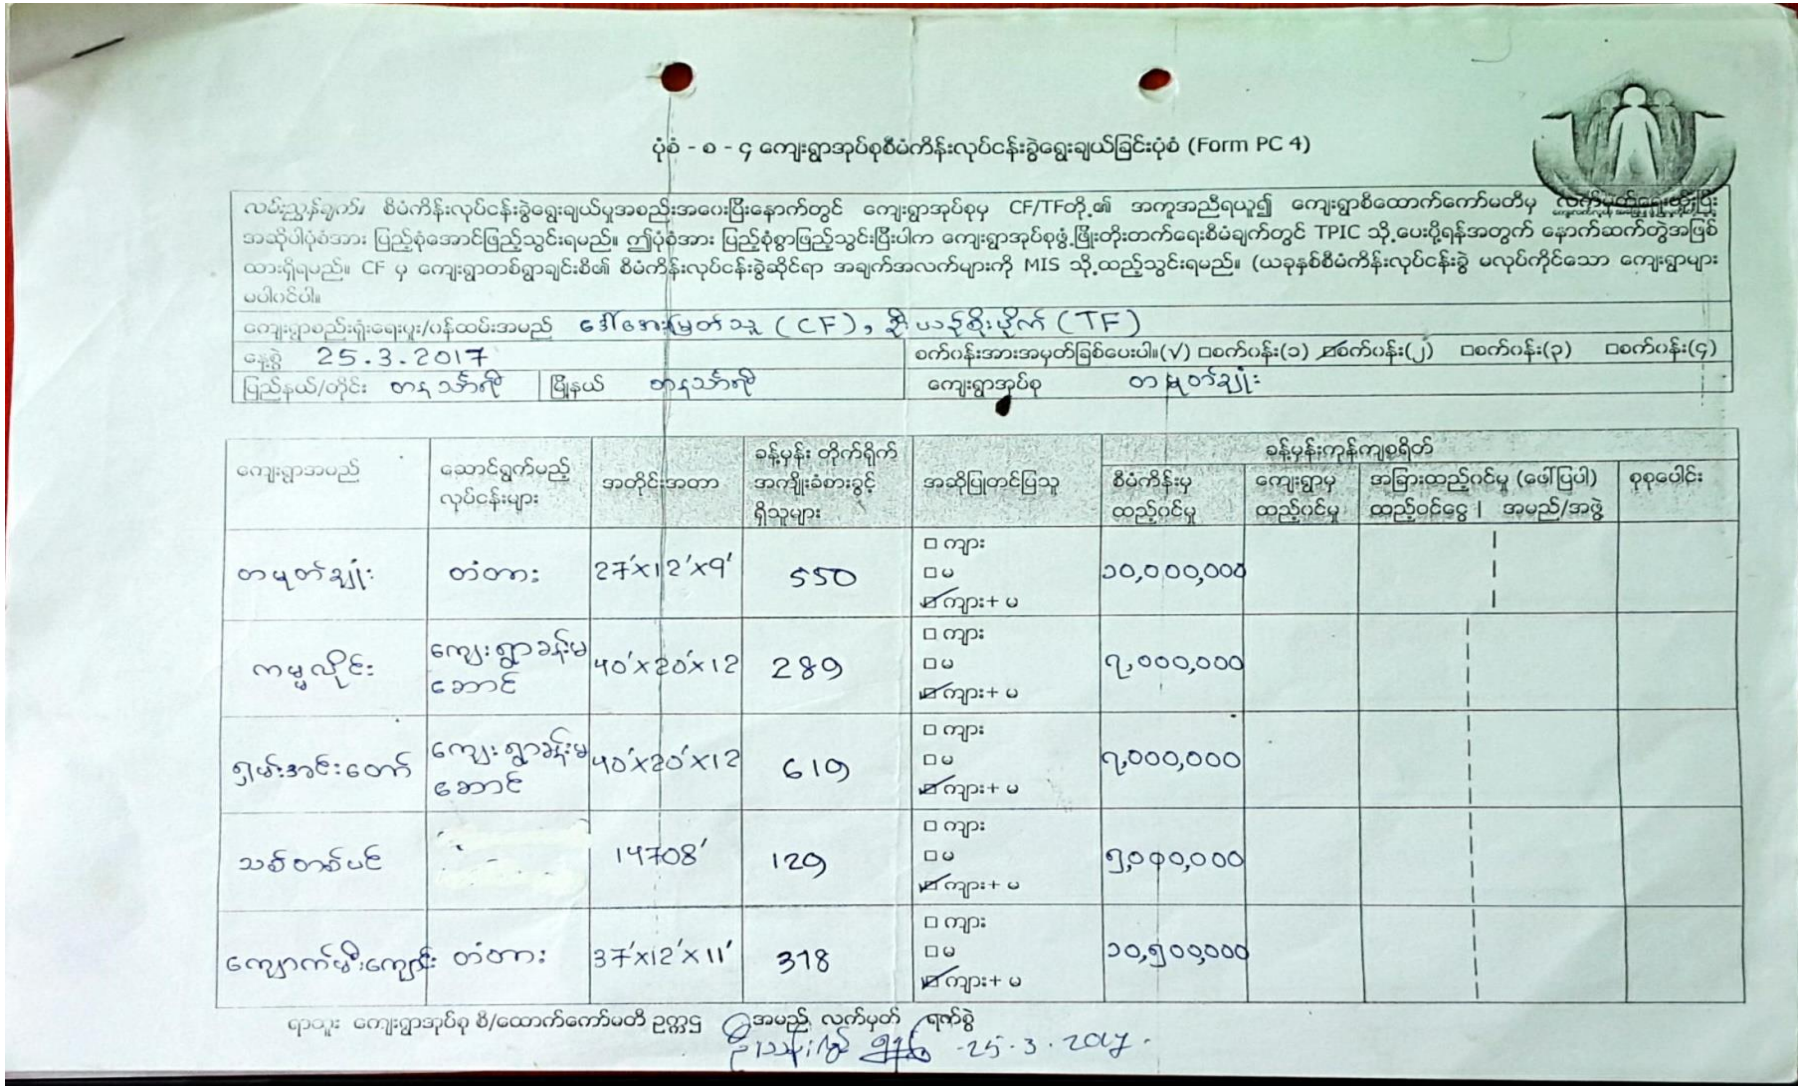 ပုံစံ - စ - ၄ ကျေးရွာအုပ်စုစီမံကိန်းလုပ်ငန်းခွဲရွေးချယ်ခြင်းပုံစံ (Form PC 4)
လမ်းညွှန်ချက်။ စီမံကိန်းလုပ်ငန်းခွဲရွေးချယ်မှုအစည်းအဝေးပြီးနောက်တွင် ကျေးရွာအုပ်စုမှ CF/TFတို့၏ အကူအညီရယူ၍ ကျေးရွာစီထောက်ကော်မတီမှ လက်မှတ်ရေးထိုးပြီး
အဆိုပါပုံစံအား ပြည့်စုံအောင်ဖြည့်သွင်းရမည်။ ဤပုံစံအား ပြည့်စုံစွာဖြည့်သွင်းပြီးပါက ကျေးရွာအုပ်စုဖွံ့ဖြိုးတိုးတက်ရေးစီမံချက်တွင် TPIC သို့ပေးပို့ရန်အတွက် နောက်ဆက်တွဲအဖြစ်
ထားရှိရမည်။ CF မှ ကျေးရွာတစ်ရွာချင်းစီ၏ စီမံကိန်းလုပ်ငန်းခွဲဆိုင်ရာ အချက်အလက်များကို MIS သို့ထည့်သွင်းရမည်။ (ယခုနှစ်စီမံကိန်းလုပ်ငန်းခွဲ မလုပ်ကိုင်သော ကျေးရွာများ
မပါဝင်ပါ။
ကျေးရွာစည်းရုံးရေးမှူး/ဝန်ထမ်းအမည် ဒေါ်အေးမြတ်သူ (CF), ဦးယဉ်စိုးပိုက် (TF)
နေ့စွဲ 25.3.2017 စက်ဝန်းအားအမှတ်ခြစ်ပေးပါ။(√) □စက်ဝန်း(၁) ☑စက်ဝန်း(၂) □စက်ဝန်း(၃) □စက်ဝန်း(၄)
ပြည်နယ်/တိုင်း တနင်္သာရီ မြို့နယ် တနင်္သာရီ ကျေးရွာအုပ်စု တမုတ်ချုံး
ခန့်မှန်းကုန်ကျစရိတ်
ကျေးရွာအမည် ဆောင်ရွက်မည့် လုပ်ငန်းများ အတိုင်းအတာ ခန့်မှန်း တိုက်ရိုက် အကျိုးခံစားခွင့် ရှိသူများ အဆိုပြုတင်ပြသူ စီမံကိန်းမှ ထည့်ဝင်မှု ကျေးရွာမှ ထည့်ဝင်မှု အခြားထည့်ဝင်မှု (ဖော်ပြပါ) ထည့်ဝင်ငွေ | အမည်/အဖွဲ့ စုစုပေါင်း
□ ကျား
တမုတ်ချုံး တံတား 27'x12'x9' 550 □ မ ၁၀,၀၀၀,၀၀၀
☑ ကျား+ မ
□ ကျား
ကမ္မလိုင်း ကျေးရွာခန်းမ ဆောင် 40'x20'x12 289 □ မ ၇,၀၀၀,၀၀၀
☑ ကျား+ မ
□ ကျား
ရှမ်းအင်းတော် ကျေးရွာခန်းမ ဆောင် 40'x20'x12 619 □ မ ၇,၀၀၀,၀၀၀
☑ ကျား+ မ
□ ကျား
သစ်တစ်ပင် - 14708' 129 □ မ
☑ ကျား+ မ
□ ကျား
ကျောက်မီးကျောင်း တံတား 37'x12'x11' 318 □ မ ၁၀,၅၀၀,၀၀၀
☑ ကျား+ မ
ရာထူး ကျေးရွာအုပ်စု စီ/ထောက်ကော်မတီ ဥက္ကဌ အမည် လက်မှတ် ရက်စွဲ
25.3.2017.